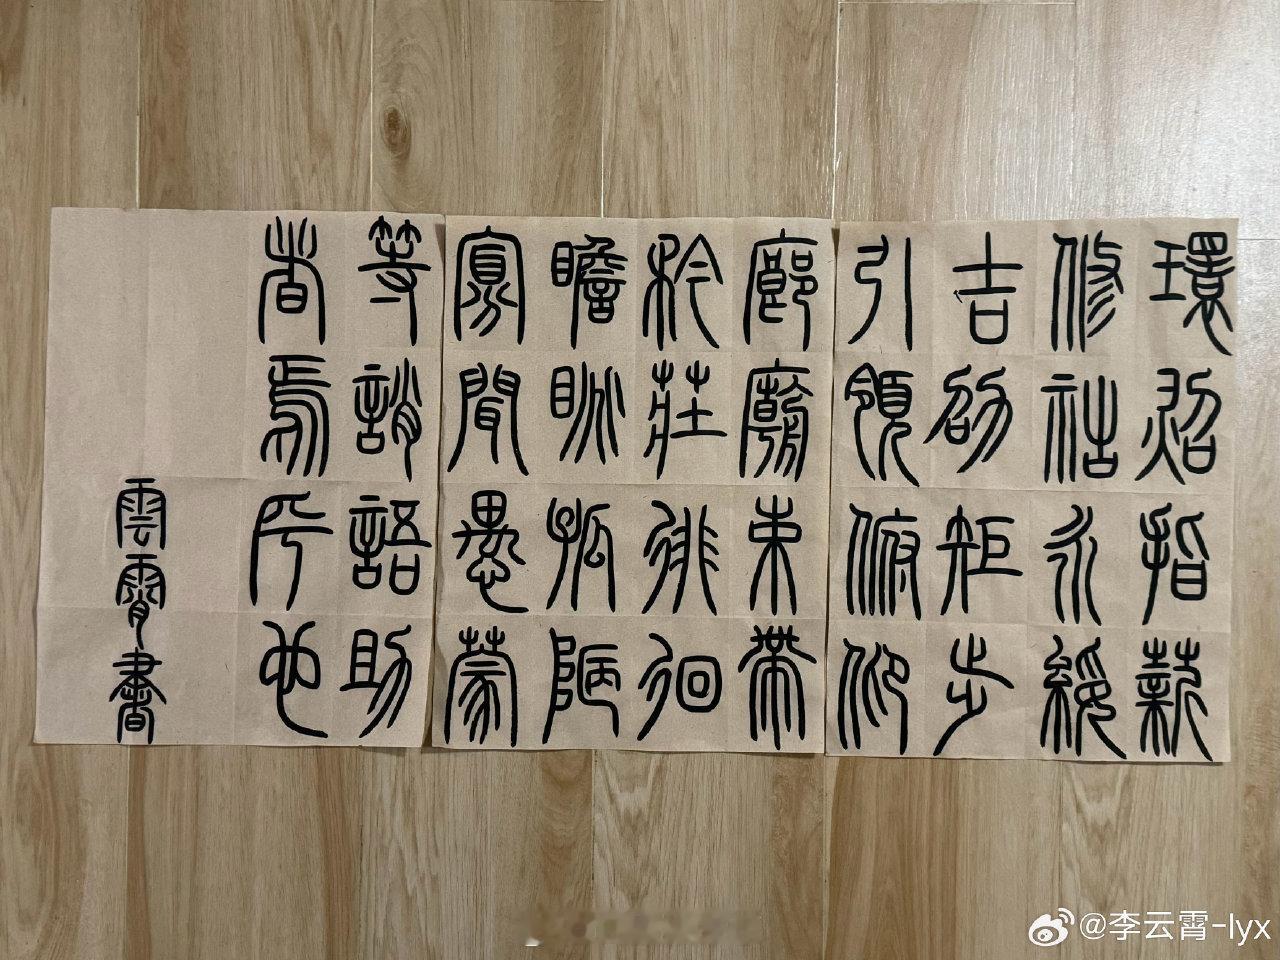 環炤指薪
修祜永綏
吉劭矩步
引領俯仰
廊廟束帶
矜莊徘徊
瞻眺孤陋
寡聞愚蒙
等誚語助
者焉乎也
雲霄書
@李云霄-lyx